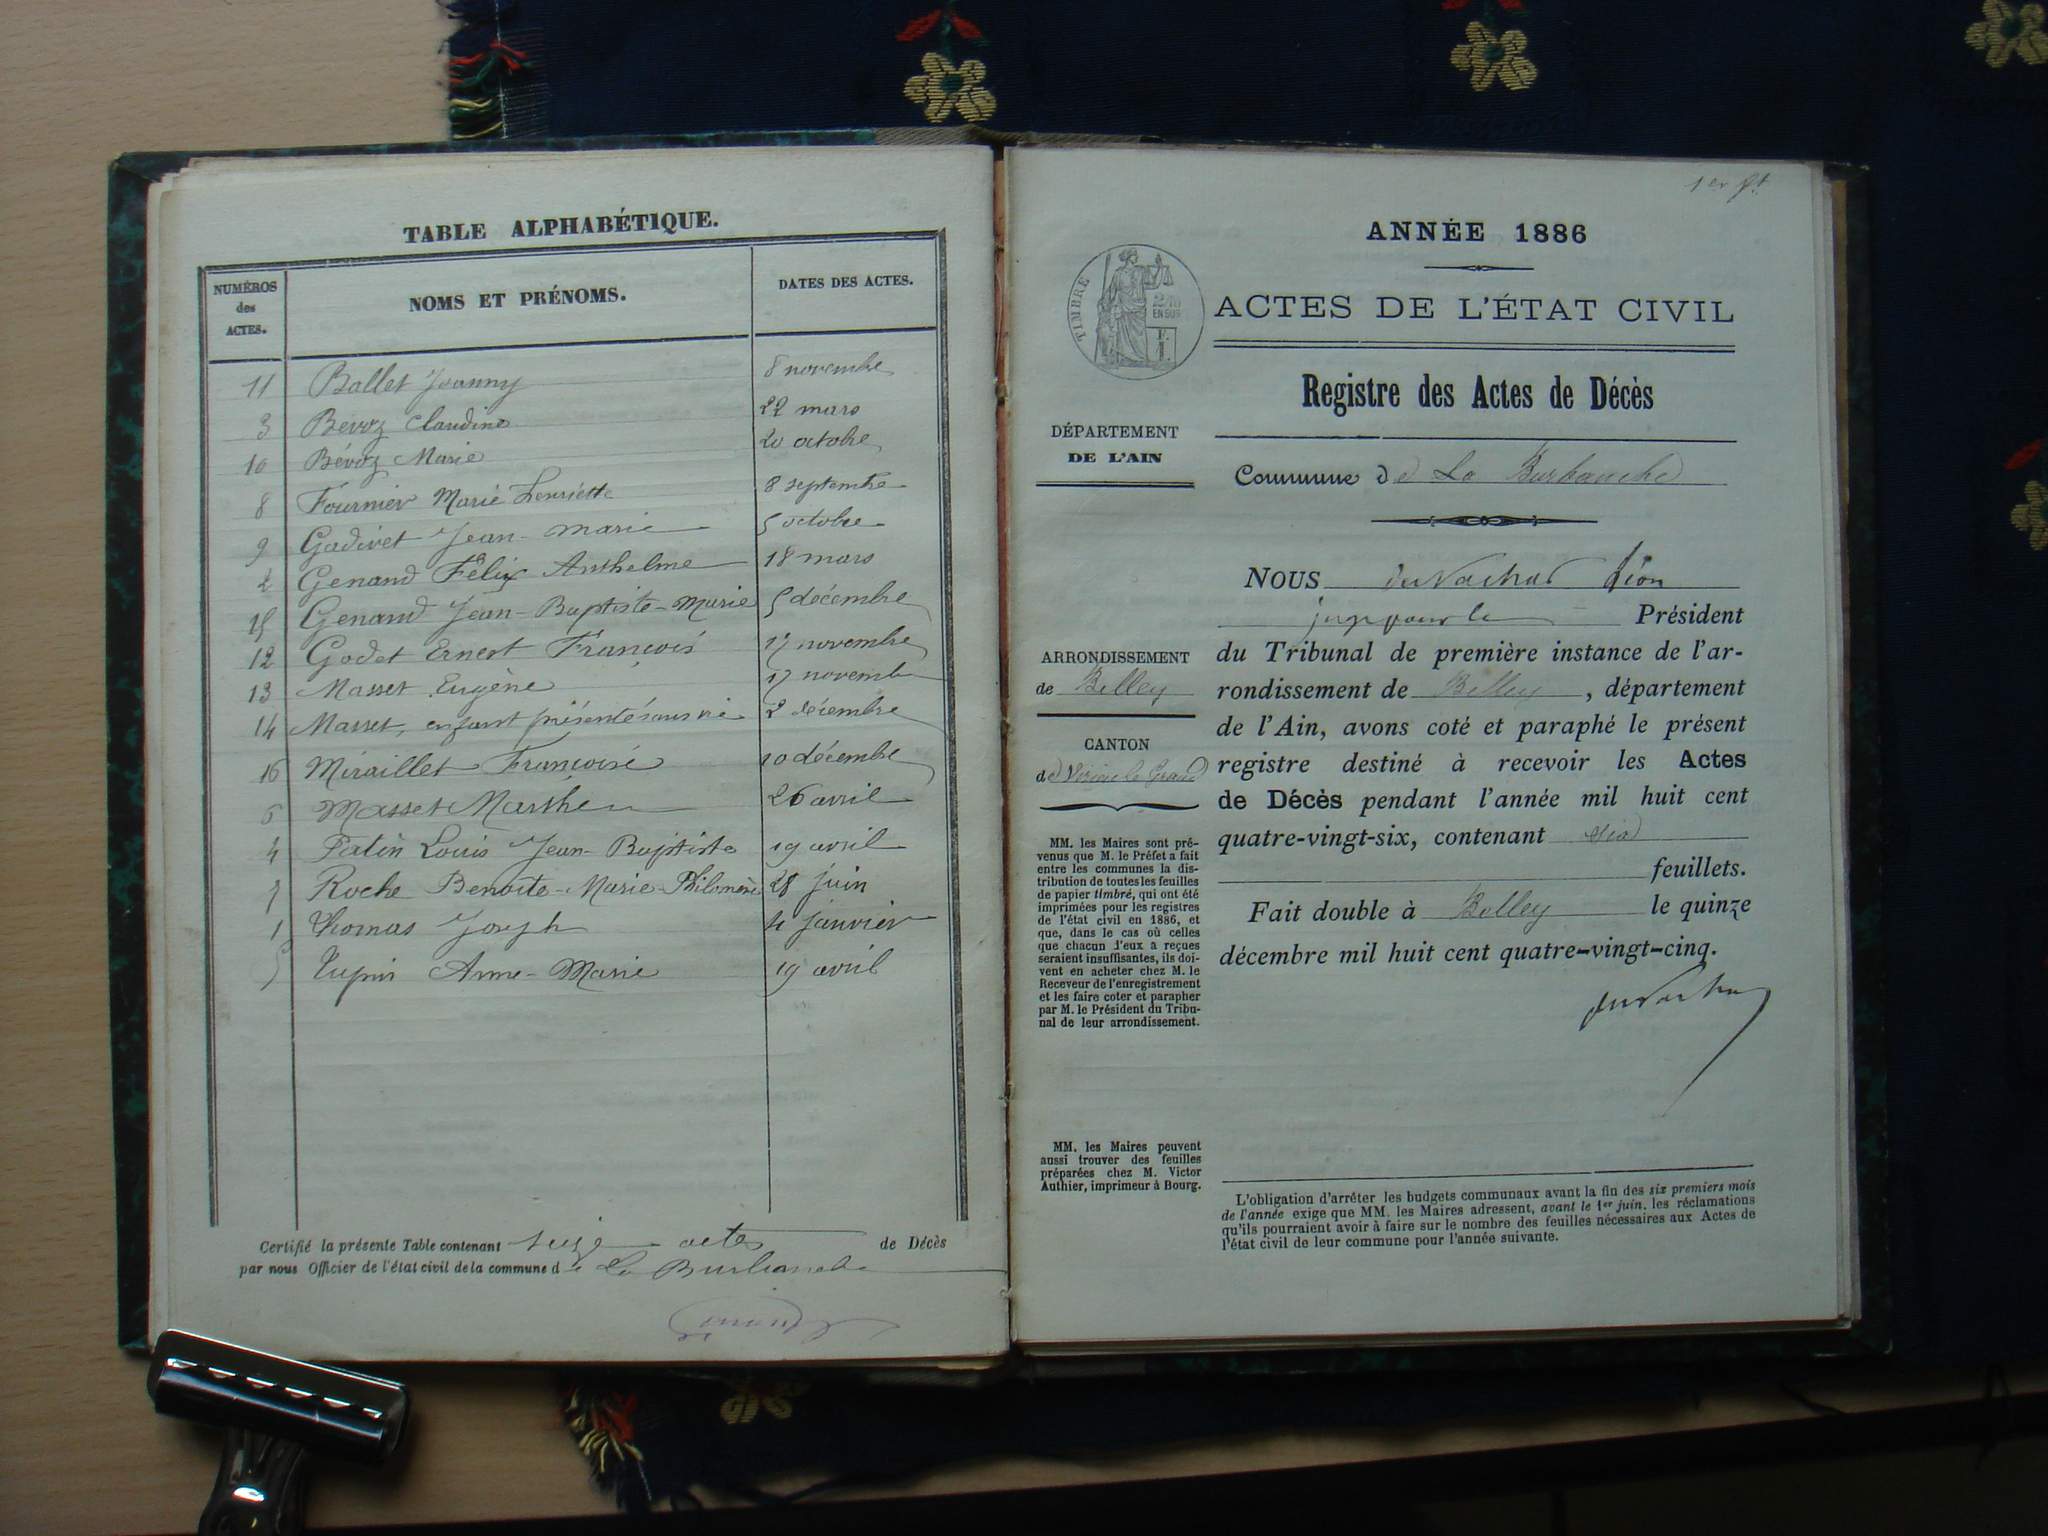 TABLE ALPHABÉTIQUE.
NUMÉROS des ACTES. NOMS ET PRÉNOMS. DATES DES ACTES.
11 Ballet Joanny 8 novembre
3 Bévoz Claudine 22 mars
10 Bévoz Marie 20 octobre
8 Fournier Marie Henriette 8 septembre
9 Gadivet Jean-Marie 5 octobre
2 Genand Félix Anthelme 18 mars
15 Genand Jean-Baptiste-Marie 5 décembre
12 Godet Ernest François 17 novembre
13 Masset Eugène 17 novemb
14 Masset, enfant présenté sans vie 2 décembre
16 Miraillet Françoise 10 décembre
6 Masset Marthe 26 avril
4 Patin Louis Jean-Baptiste 19 avril
7 Roche Benoite-Marie-Philomène 28 juin
1 Thomas Joseph 4 janvier
5 Tupin Anne-Marie 19 avril
Certifié la présente Table contenant seize actes de Décès
par nous Officier de l'état civil de la commune de La Burbanche
Genand
1er ft
ANNÉE 1886
TIMBRE
2/10
EN SUS
ACTES DE L'ÉTAT CIVIL
Registre des Actes de Décès
DÉPARTEMENT
DE L'AIN
Commune de La Burbanche
NOUS Léon
juge pour le Président
du Tribunal de première instance de l'ar-
rondissement de Belley, département
de l'Ain, avons coté et paraphé le présent
registre destiné à recevoir les Actes
de Décès pendant l'année mil huit cent
quatre-vingt-six, contenant six
feuillets.
Fait double à Belley le quinze
décembre mil huit cent quatre-vingt-cinq.
ARRONDISSEMENT
de Belley
CANTON
de Virieu le Grand
MM. les Maires sont pré-
venus que M. le Préfet a fait
entre les communes la dis-
tribution de toutes les feuilles
de papier timbré, qui ont été
imprimées pour les registres
de l'état civil en 1886, et
que, dans le cas où celles
que chacun d'eux a reçues
seraient insuffisantes, ils doi-
vent en acheter chez M. le
Receveur de l'enregistrement
et les faire coter et parapher
par M. le Président du Tribu-
nal de leur arrondissement.
MM. les Maires peuvent
aussi trouver des feuilles
préparées chez M. Victor
Authier, imprimeur à Bourg.
L'obligation d'arrêter les budgets communaux avant la fin des six premiers mois
de l'année exige que MM. les Maires adressent, avant le 1er juin, les réclamations
qu'ils pourraient avoir à faire sur le nombre des feuilles nécessaires aux Actes de
l'état civil de leur commune pour l'année suivante.